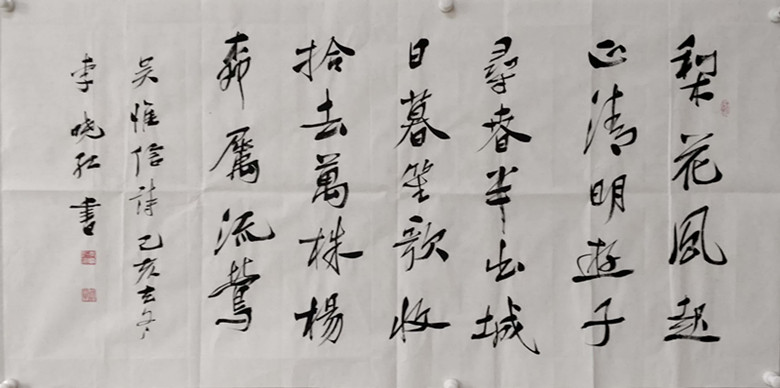 梨花風起
正清明遊子
尋春半出城
日暮笙歌收
拾去萬株楊
柳屬流鶯
吴惟信詩己亥玄冬
李晓弘書